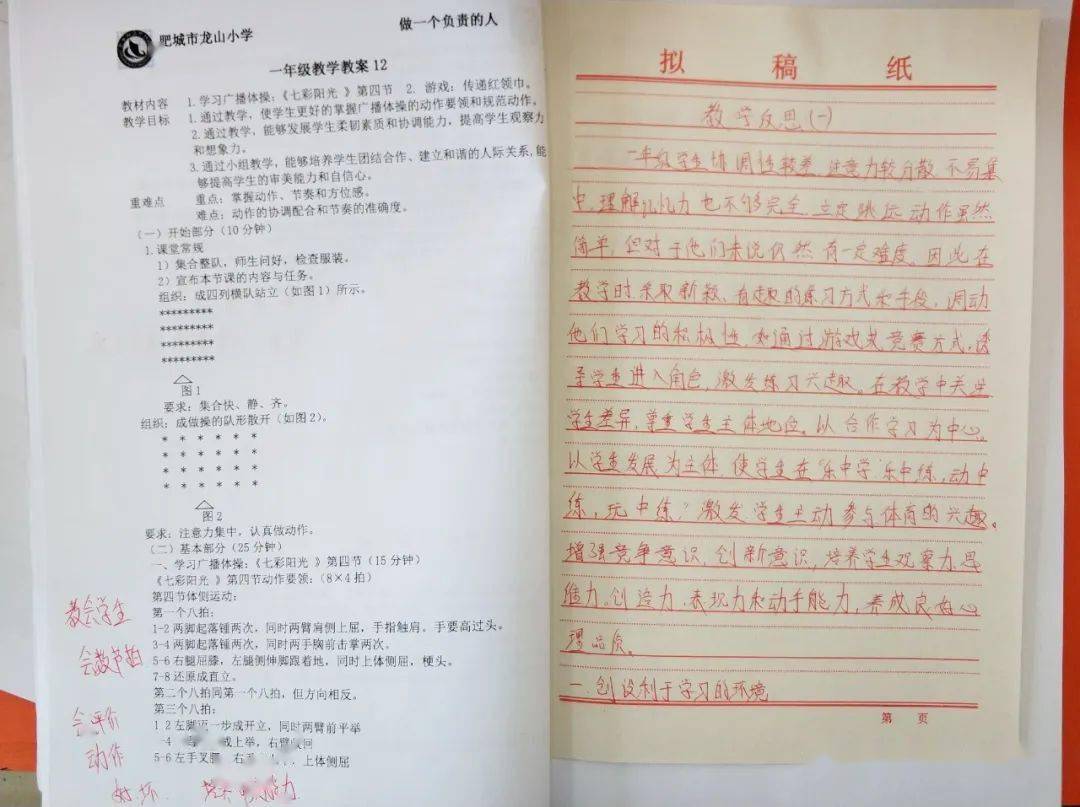 肥城市龙山小学
做一个负责的人
一年级教学教案 12
教材内容 1.学习广播体操:《七彩阳光 》第四节 2. 游戏:传递红领巾。
教学目标 1.通过教学,使学生更好的掌握广播体操的动作要领和规范动作。
2.通过教学,能够发展学生柔韧素质和协调能力,提高学生观察力
和想象力。
3.通过小组教学,能够培养学生团结合作、建立和谐的人际关系,能
够提高学生的审美能力和自信心。
重难点 重点:掌握动作、节奏和方位感。
难点:动作的协调配合和节奏的准确度。
(一)开始部分(10 分钟)
1.课堂常规
1)集合整队,师生问好,检查服装。
2)宣布本节课的内容与任务。
组织:成四列横队站立(如图 1)所示。
*********
*********
*********
*********
图 1
要求:集合快、静、齐。
组织:成做操的队形散开(如图 2)。
* * * * * *
* * * * * *
* * * * * *
* * * * * *
图 2
要求:注意力集中,认真做动作。
(二)基本部分(25 分钟)
一、学习广播体操:《七彩阳光 》第四节(15 分钟)
《七彩阳光 》第四节动作要领:(8×4 拍)
第四节体侧运动:
第一个八拍:
1-2 两脚起落锤两次,同时两臂肩侧上屈,手指触肩。手要高过头。
3-4 两脚起落锤两次,同时两手胸前击掌两次。
5-6 右腿屈膝,左腿侧伸脚跟着地,同时上体侧屈,梗头。
7-8 还原成直立。
第二个八拍同第一个八拍,但方向相反。
第三个八拍:
1 2 左脚迈一步成开立,同时两臂前平举
-4 成上举,右臂 回
5-6 左手叉腰 右 上体侧屈
教会学生
会数节拍
会评价
动作
好坏
拟稿纸
教学反思(一)
一年级学生协调性较差,注意力较分散,不易集
中,理解记忆力也不够完全,立定跳远动作虽然
简单,但对于他们来说仍然有一定难度。因此在
教学时采取新颖、有趣的练习方式和手段,调动
他们学习的积极性,如通过游戏或竞赛方式,诱
导学生进入角色,激发练习兴趣。在教学中关注
学生差异,尊重学生主体地位。以合作学习为中心。
以学生发展为主体,使学生在“乐中学”乐中练,动中
练,玩中练”激发学生主动参与体育的兴趣。
增强竞争意识,创新意识,培养学生观察力,思
维力,创造力,表现力和动手能力,养成良好心
理品质。
一.创设利于学习的环境
第 页